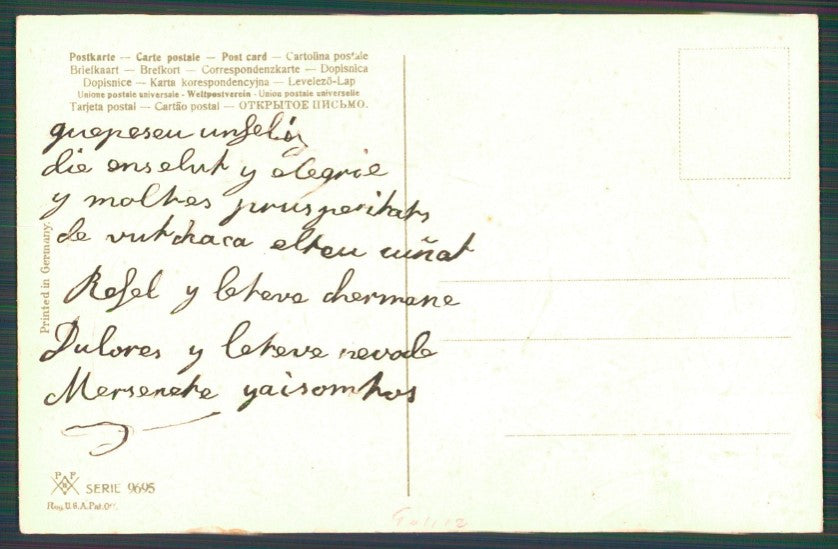 Postkarte — Carte postale — Post card — Cartolina postale
Briefkaart — Brefkort — Correspondenzkarte — Dopisnica
Dopisnice — Karta korespondencyjna — Levelezö-Lap
Unione postale universale - Weltpostverein - Union postale universelle
Tarjeta postal — Cartão postal — ОТКРЫТОЕ ПИСЬМО.
quepeseu unfelis
die enselut y alegrie
y moltres prusperitats
de vutdnaca elteu cuñat
Refel y leteve chermane
Dulores y leteve nevode
Mersenete yaisomtos
Printed in Germany.
P F
B
SERIE 9695
Reg. U.S.A. Pat. Off.